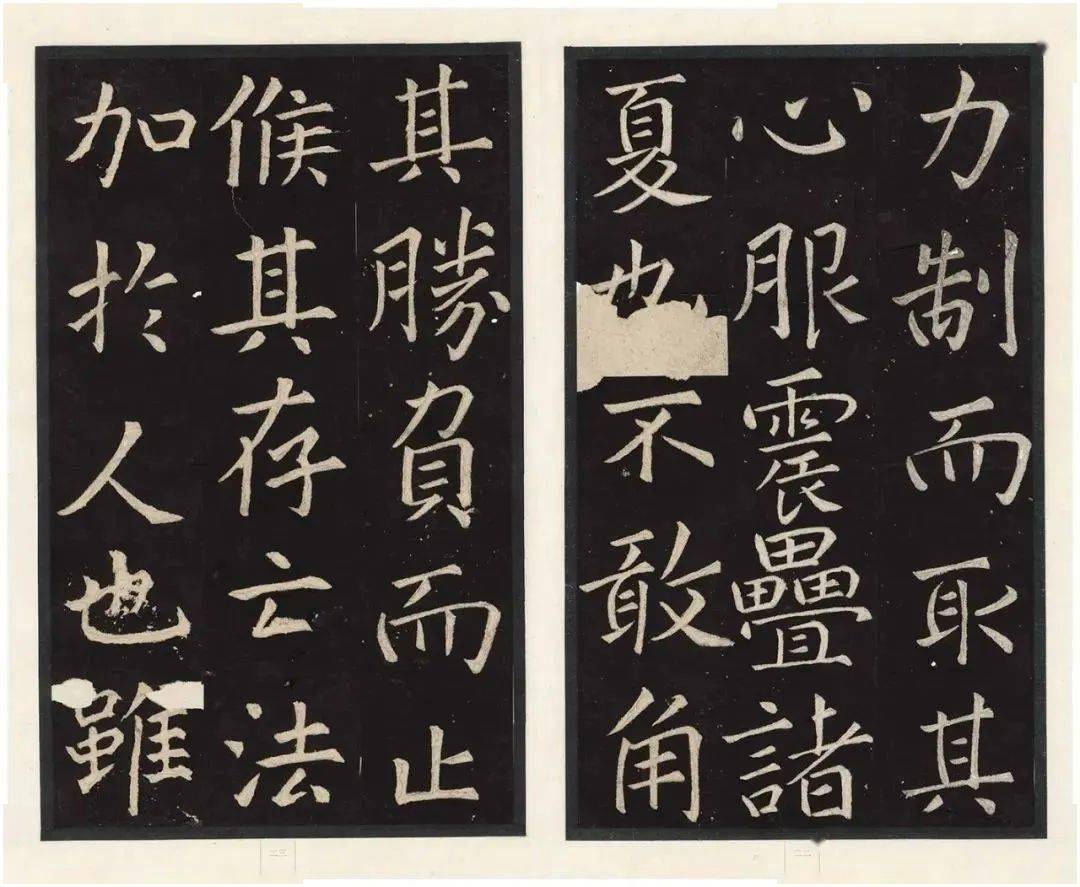 力制而取其
心服震疊諸
夏也不敢角
其勝負而止
候其存亡法
加於人也雖